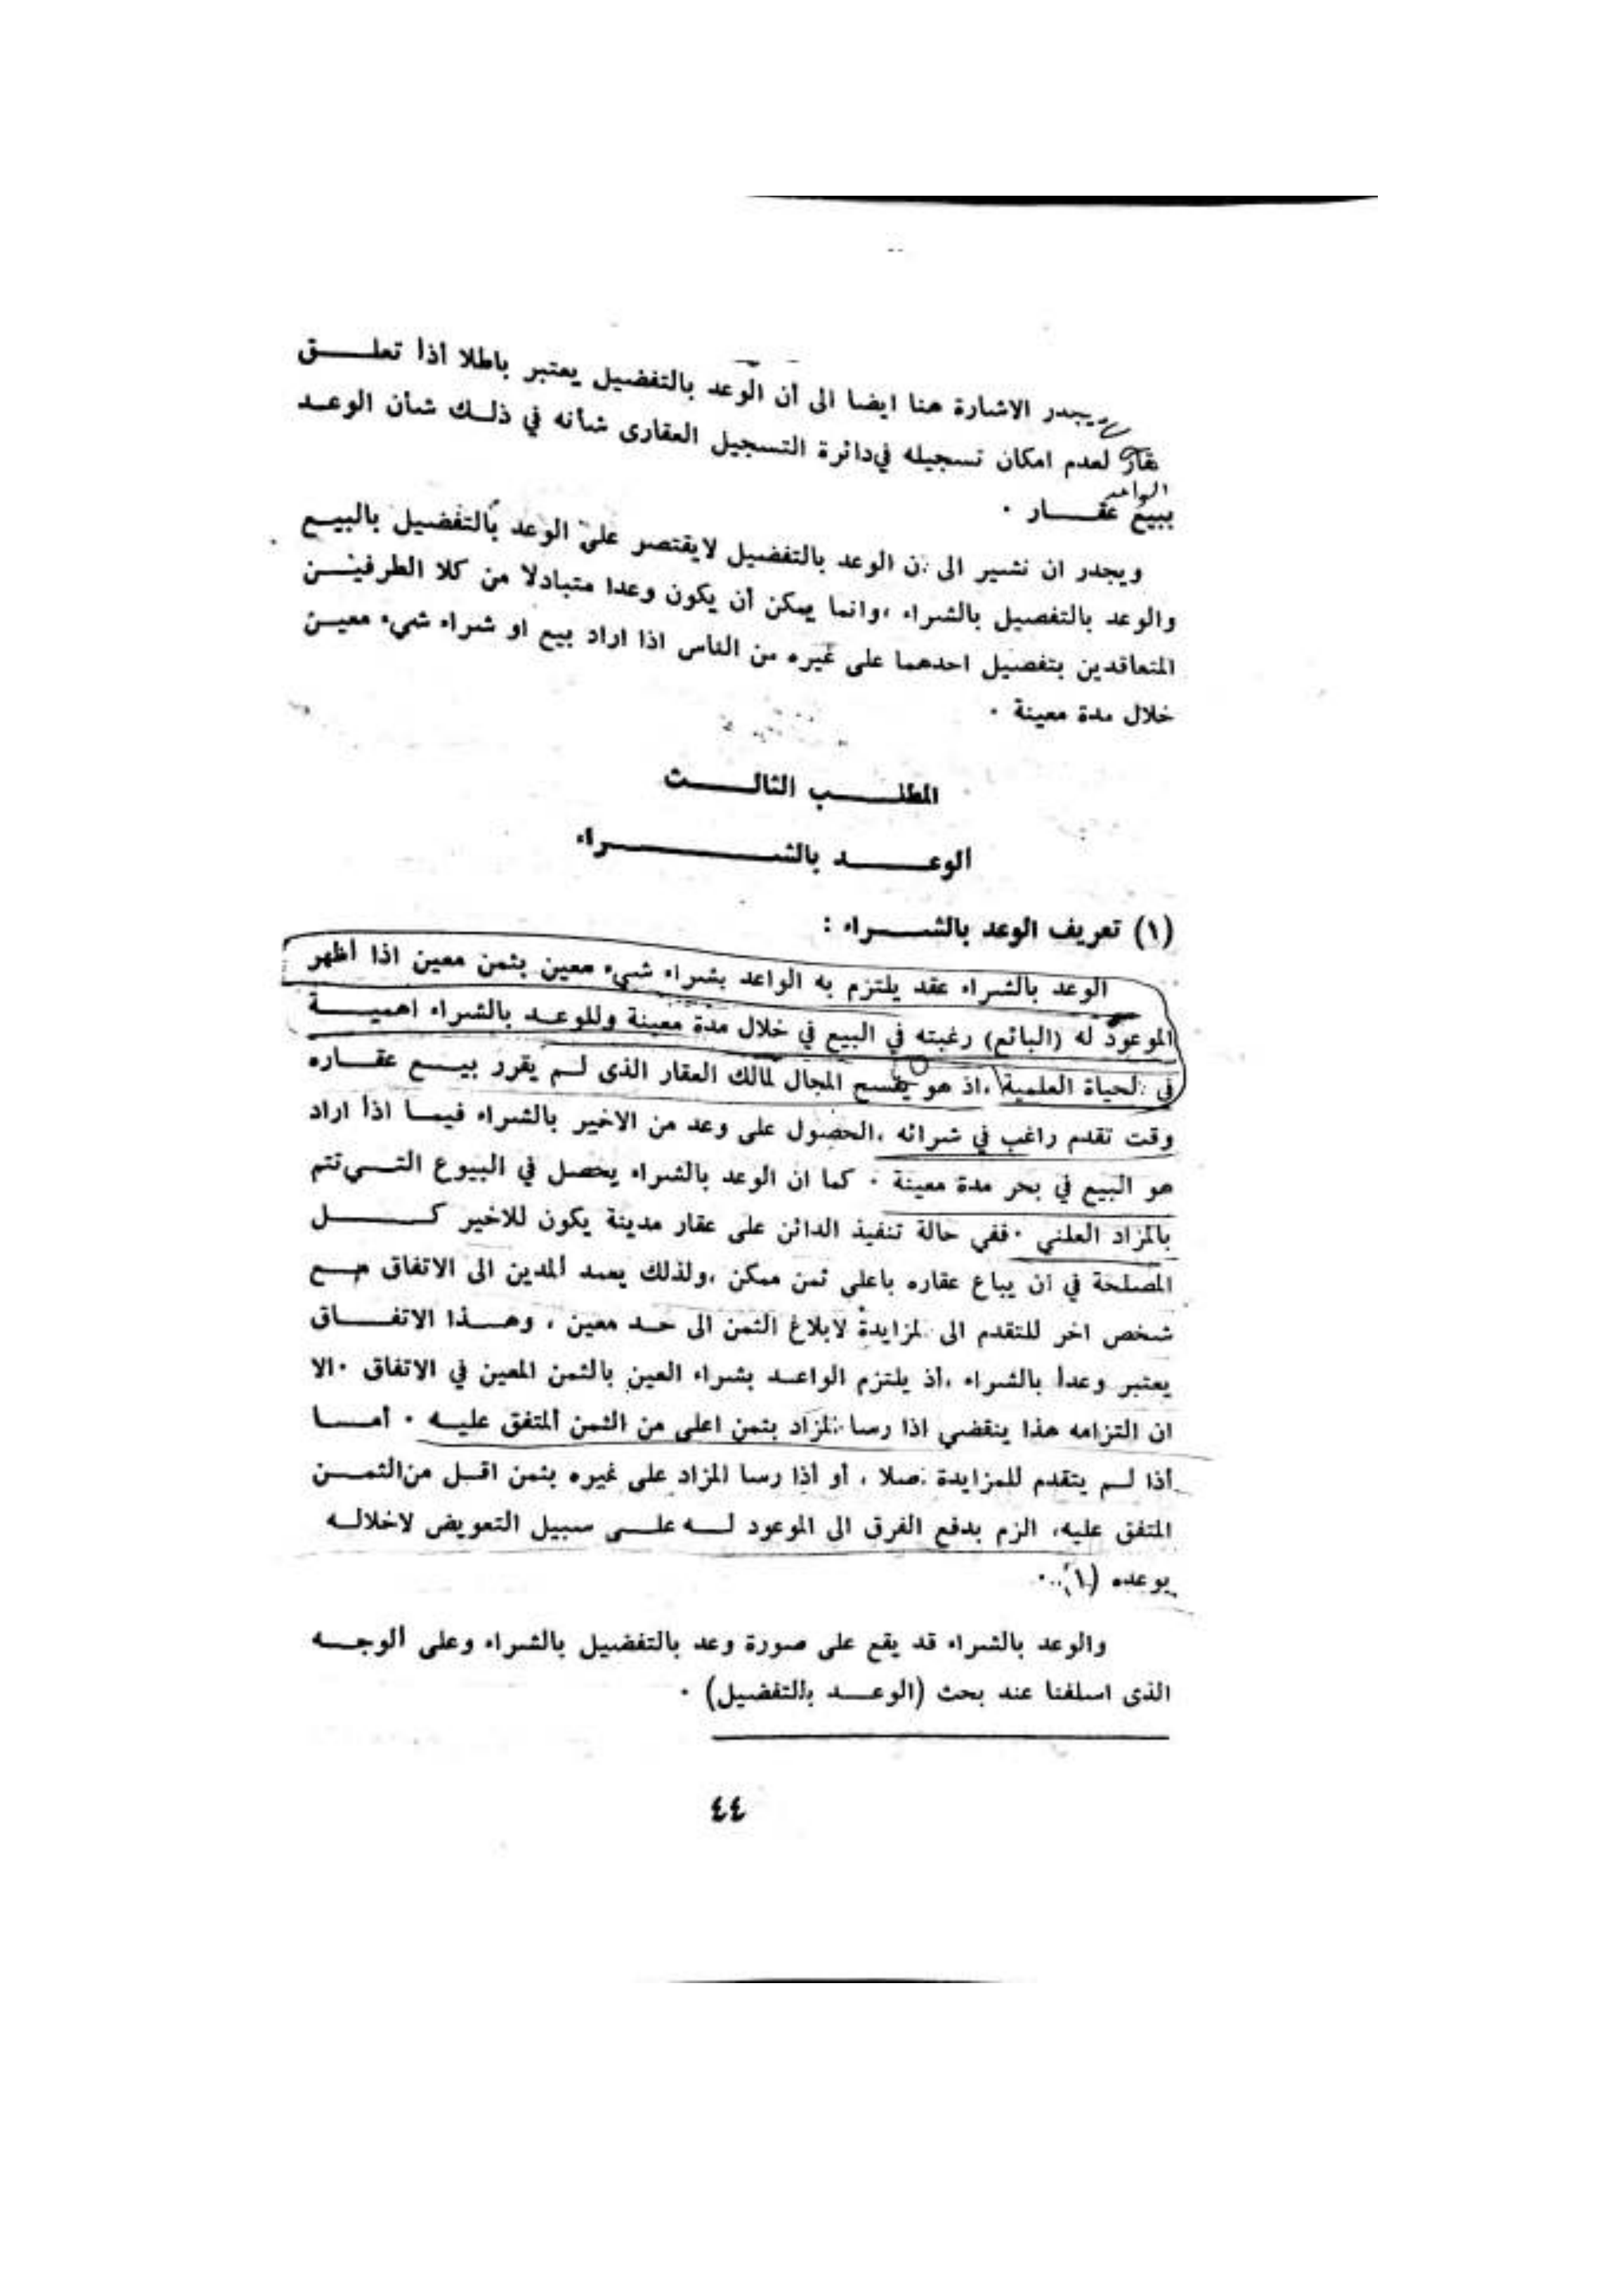 ويجدر الاشارة هنا ايضا الى أن الوعد بالتفضيل يعتبر باطلا أذا تعلق
بعقار لعدم امكان تسجيله في دائرة التسجيل العقارى شأنه في ذلك شأن الوعد
الواعد
ببيع عقار .
ويجدر ان نشير الى ن الوعد بالتفضيل لايقتصر على الوعد بالتفضيل بالبيع
والوعد بالتفصيل بالشراء ،وانما يمكن أن يكون وعدا متبادلا من كلا الطرفين
المتعاقدين بتفصيل احدهما على غيره من الناس اذا اراد بيع او شراء شيء معين
خلال مدة معينة .
المطلب الثالث
الوعد بالشراء
(١) تعريف الوعد بالشراء :
الوعد بالشراء عقد يلتزم به الواعد بشراء شيء معين بثمن معين اذا أظهر
الموعود له (البائع) رغبته في البيع في خلال مدة معينة وللوعد بالشراء اهمية
في الحياة العلمية ،اذ هو يفسح المجال لمالك العقار الذى لم يقرر بيع عقاره
وقت تقدم راغب في شرائه ،الحصول على وعد من الاخير بالشراء فيما اذا اراد
هو البيع في بحر مدة معينة . كما ان الوعد بالشراء يحصل في البيوع التي تتم
بالمزاد العلني .ففي حالة تنفيذ الدائن على عقار مدينة يكون للاخير كل
المصلحة في ان يباع عقاره باعلى ثمن ممكن ،ولذلك يعمد المدين الى الاتفاق مع
شخص اخر للتقدم الى المزايدة لابلاغ الثمن الى حد معين ، وهذا الاتفاق
يعتبر وعدا بالشراء ،أذ يلتزم الواعد بشراء العين بالثمن المعين في الاتفاق .الا
ان التزامه هذا ينقضي اذا رسا المزاد بثمن اعلى من الثمن المتفق عليه . أما
أذا لم يتقدم للمزايدة اصلا ، أو أذا رسا المزاد على غيره بثمن اقل من الثمن
المتفق عليه، الزم بدفع الفرق الى الموعود له على سبيل التعويض لاخلاله
بوعده (١) .
والوعد بالشراء قد يقع على صورة وعد بالتفضيل بالشراء وعلى الوجه
الذى اسلفنا عند بحث (الوعد بالتفضيل) .
٤٤